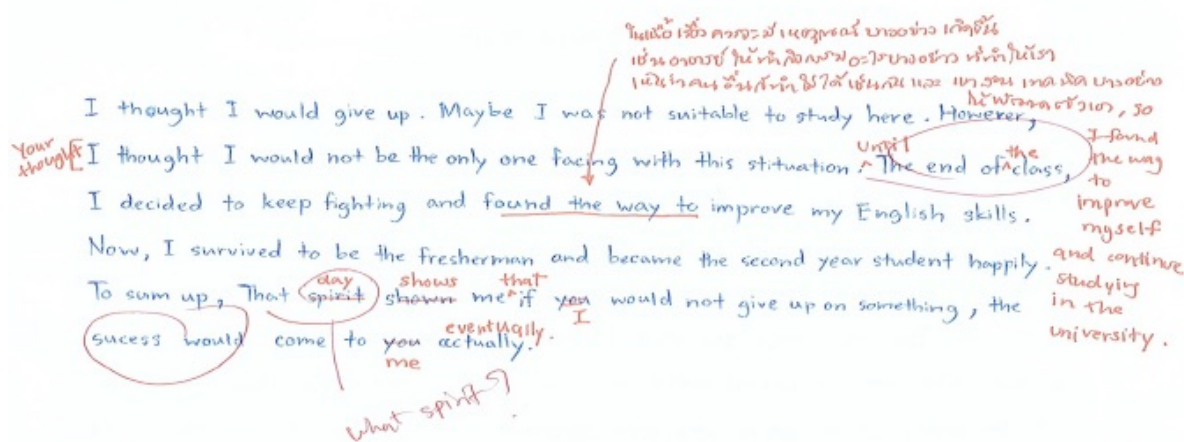 ในเนื้อเรื่องควรจะมีเหตุการณ์บางอย่างเกิดขึ้น
เช่นอาจารย์ให้ทำกิจกรรมอะไรบางอย่าง ที่ทำให้เรา
เห็นว่าคนอื่นก็ทำไม่ได้เช่นกัน และ เทคนิคบางอย่าง
ให้พัฒนาตัวเอง, so
I found
the way
to
improve
myself
and continue
studying
in the
university.
I thought I would give up. Maybe I was not suitable to study here. However,
Your thought
I thought I would not be the only one facing with this stituation. Until The end of the class,
I decided to keep fighting and found the way to improve my English skills.
Now, I survived to be the fresherman and became the second year student happily.
day shows that
To sum up, That spirit shown me if you would not give up on something, the
I
eventually.
sucess would come to you actually.
me
what spirit?